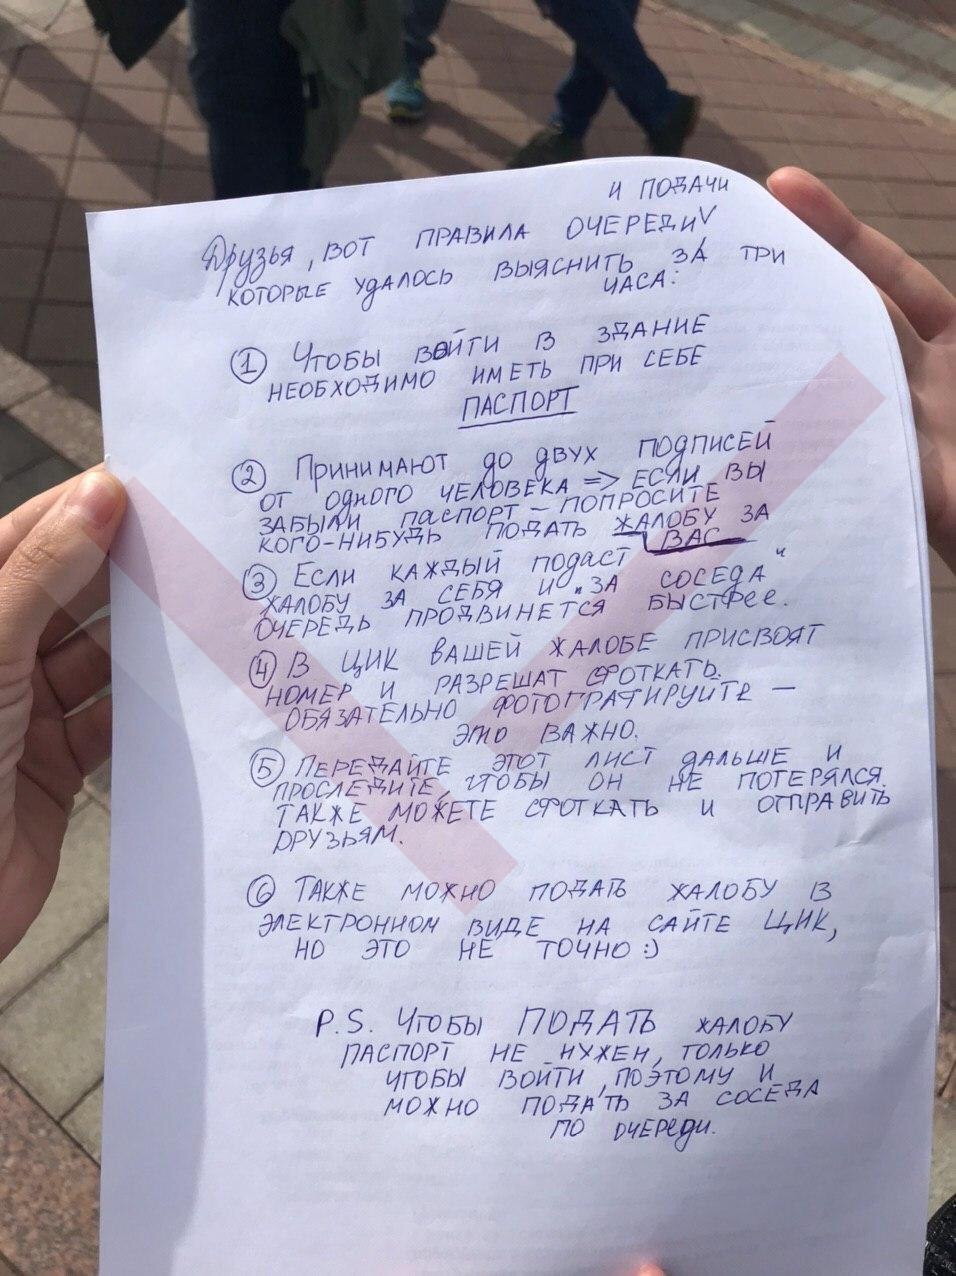 и подачи
Друзья, вот правила очередиV
которые удалось выяснить за три
часа:
① Чтобы войти в здание
необходимо иметь при себе
паспорт
② Принимают до двух подписей
от одного человека => если вы
забыли паспорт – попросите
кого-нибудь подать жалобу за
вас
③ Если каждый подаст
жалобу за себя и „за соседа“
очередь продвинется быстрее.
④ В ЦИК вашей жалобе присвоят
номер и разрешат фоткать.
Обязательно фотографируйте –
это важно.
⑤ Передайте этот лист дальше и
проследите чтобы он не потерялся.
Также можете фоткать и отправить
друзьям.
⑥ Также можно подать жалобу в
электронном виде на сайте ЦИК,
но это не точно :)
P.S. Чтобы ПОДАТЬ жалобу
паспорт не нужен, только
чтобы войти, поэтому и
можно подать за соседа
по очереди.